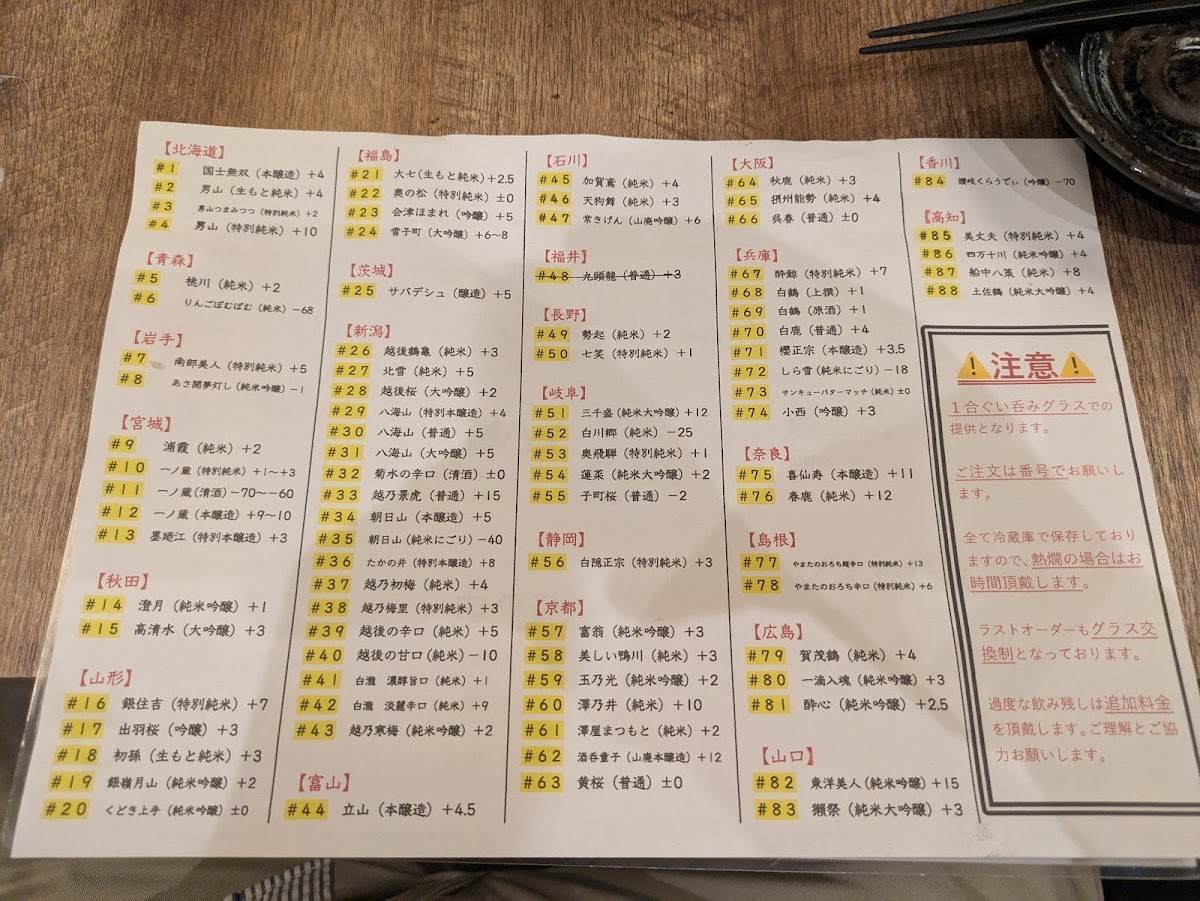 【北海道】
#1 国士無双（本醸造）+4
#2 男山（生もと純米）+4
#3 男山つまみつつ（特別純米）+2
#4 男山（特別純米）+10
【青森】
#5 桃川（純米）+2
#6 りんごぽむぽむ（純米）-68
【岩手】
#7 南部美人（特別純米）+5
#8 あさ開夢灯し（純米吟醸）-1
【宮城】
#9 浦霞（純米）+2
#10 一ノ蔵（特別純米）+1〜+3
#11 一ノ蔵（清酒）-70〜-60
#12 一ノ蔵（本醸造）+9〜10
#13 墨廼江（特別本醸造）+3
【秋田】
#14 澄月（純米吟醸）+1
#15 高清水（大吟醸）+3
【山形】
#16 銀住吉（特別純米）+7
#17 出羽桜（吟醸）+3
#18 初孫（生もと純米）+3
#19 銀嶺月山（純米吟醸）+2
#20 くどき上手（純米吟醸）±0
【福島】
#21 大七（生もと純米）+2.5
#22 奥の松（特別純米）±0
#23 会津ほまれ（吟醸）+5
#24 雪子町（大吟醸）+6〜8
【茨城】
#25 サバデシュ（醸造）+5
【新潟】
#26 越後鶴亀（純米）+3
#27 北雪（純米）+5
#28 越後桜（大吟醸）+2
#29 八海山（特別本醸造）+4
#30 八海山（普通）+5
#31 八海山（大吟醸）+5
#32 菊水の辛口（清酒）±0
#33 越乃景虎（普通）+15
#34 朝日山（本醸造）+5
#35 朝日山（純米にごり）-40
#36 たかの井（特別本醸造）+8
#37 越乃初梅（純米）+4
#38 越乃梅里（特別純米）+3
#39 越後の辛口（純米）+5
#40 越後の甘口（純米）-10
#41 白瀧 濃醇旨口（純米）+1
#42 白瀧 淡麗辛口（純米）+9
#43 越乃寒梅（純米吟醸）+2
【富山】
#44 立山（本醸造）+4.5
【石川】
#45 加賀鳶（純米）+4
#46 天狗舞（純米）+3
#47 常きげん（山廃吟醸）+6
【福井】
#48 九頭龍（普通）+3
【長野】
#49 勢起（純米）+2
#50 七笑（特別純米）+1
【岐阜】
#51 三千盛（純米大吟醸）+12
#52 白川郷（純米）-25
#53 奥飛騨（特別純米）+1
#54 蓮菜（純米大吟醸）+2
#55 子町桜（普通）-2
【静岡】
#56 白隠正宗（特別純米）+3
【京都】
#57 富翁（純米吟醸）+3
#58 美しい鴨川（純米）+3
#59 玉乃光（純米吟醸）+2
#60 澤乃井（純米）+10
#61 澤屋まつもと（純米）+2
#62 酒呑童子（山廃本醸造）+12
#63 黄桜（普通）±0
【大阪】
#64 秋鹿（純米）+3
#65 摂州能勢（純米）+4
#66 呉春（普通）±0
【兵庫】
#67 酔鯨（特別純米）+7
#68 白鶴（上撰）+1
#69 白鶴（原酒）+1
#70 白鹿（普通）+4
#71 櫻正宗（本醸造）+3.5
#72 しら雪（純米にごり）-18
#73 サンキューバターマッチ（純米）±0
#74 小西（吟醸）+3
【奈良】
#75 喜仙寿（本醸造）+11
#76 春鹿（純米）+12
【島根】
#77 やまたのおろち超辛口（特別純米）+13
#78 やまたのおろち辛口（特別純米）+6
【広島】
#79 賀茂鶴（純米）+4
#80 一滴入魂（純米吟醸）+3
#81 酔心（純米吟醸）+2.5
【山口】
#82 東洋美人（純米吟醸）+15
#83 獺祭（純米大吟醸）+3
【香川】
#84 讃岐くらうでぃ（吟醸）-70
【高知】
#85 美丈夫（特別純米）+4
#86 四万十川（純米吟醸）+4
#87 船中八策（純米）+8
#88 土佐鶴（純米大吟醸）+4
注意
１合ぐい呑みグラスでの
提供となります。
ご注文は番号でお願いし
ます。
全て冷蔵庫で保存しており
ますので、熱燗の場合はお
時間頂戴します。
ラストオーダーもグラス交
換制となっております。
過度な飲み残しは追加料金
を頂戴します。ご理解とご協
力お願いします。